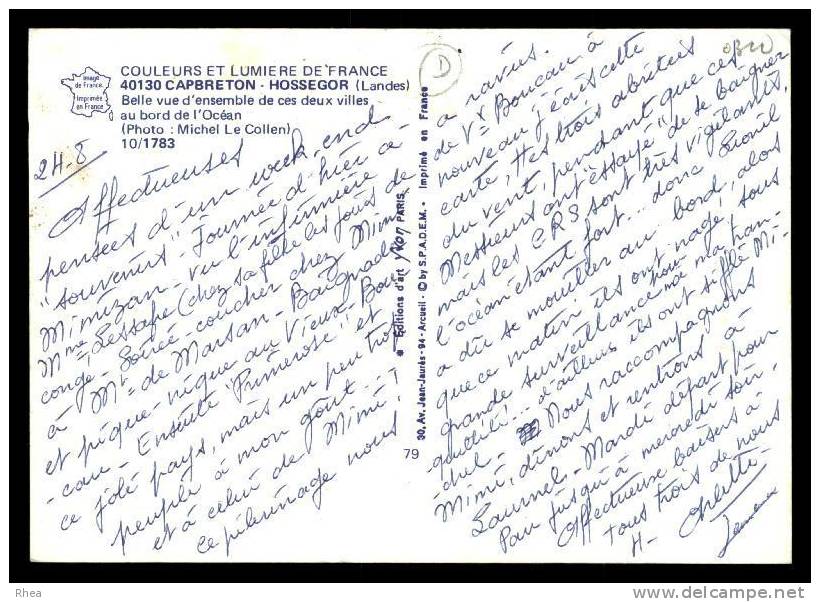 COULEURS ET LUMIERE DE FRANCE
40130 CAPBRETON - HOSSEGOR (Landes)
Belle vue d'ensemble de ces deux villes
au bord de l'Océan
(Photo : Michel Le Collen)
10/1783
Image
de France
Imprimée
en France
24-8
Affectueuses
pensées d'un week-end
"souvenirs". Journée d'hier à
Mimizan - vu l'infirmière
Mme (chez sa fille les jours de
congé - Soirée - coucher chez Mimi
à Mt-de Marsan - Baignade
et pique-nique au Vieux Bou-
cau - Ensuite "Primerose" et
ce joli pays, mais un peu trop
peuplé à mon goût...
et à celui de Mimi!
ce pèlerinage nous
79
30, Av. Jean-Jaurès - 94 - Arcueil - © by S.P.A.D.E.M. - Imprimé en France
Editions d'art yvon PARIS
D
a ravies.
de Vx Boucau à
nouveau j'écris cette
carte, ttes trois abritées
du vent, pendant que ces
Messieurs ont "essayé" de se baigner
mais les CRS sont très vigilants,
l'océan étant fort... donc Lionil
a dû se mouiller au bord, alors
que ce matin ils ont nagé, sous
grande surveillance pour moi ma tran-
quillité!... d'ailleurs ils ont sifflé Mi-
chel - Nous raccompagnons
Mimi, dînons et rentrons à
Mardi départ pour
Pau jusqu'à mercredi soir.
Affectueux baisers à
tous trois de nous
4 - Arlette -
Rhea
www.delcampe.net